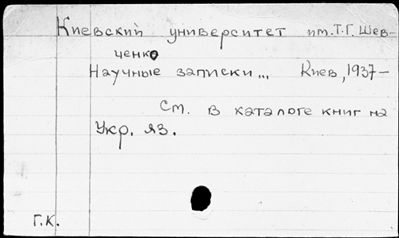 Киевский университет им. Т.Г. Шев-
ченко
Научные записки... Киев, 1937-
См. в каталоге книг на
Укр. яз.
Г.К.